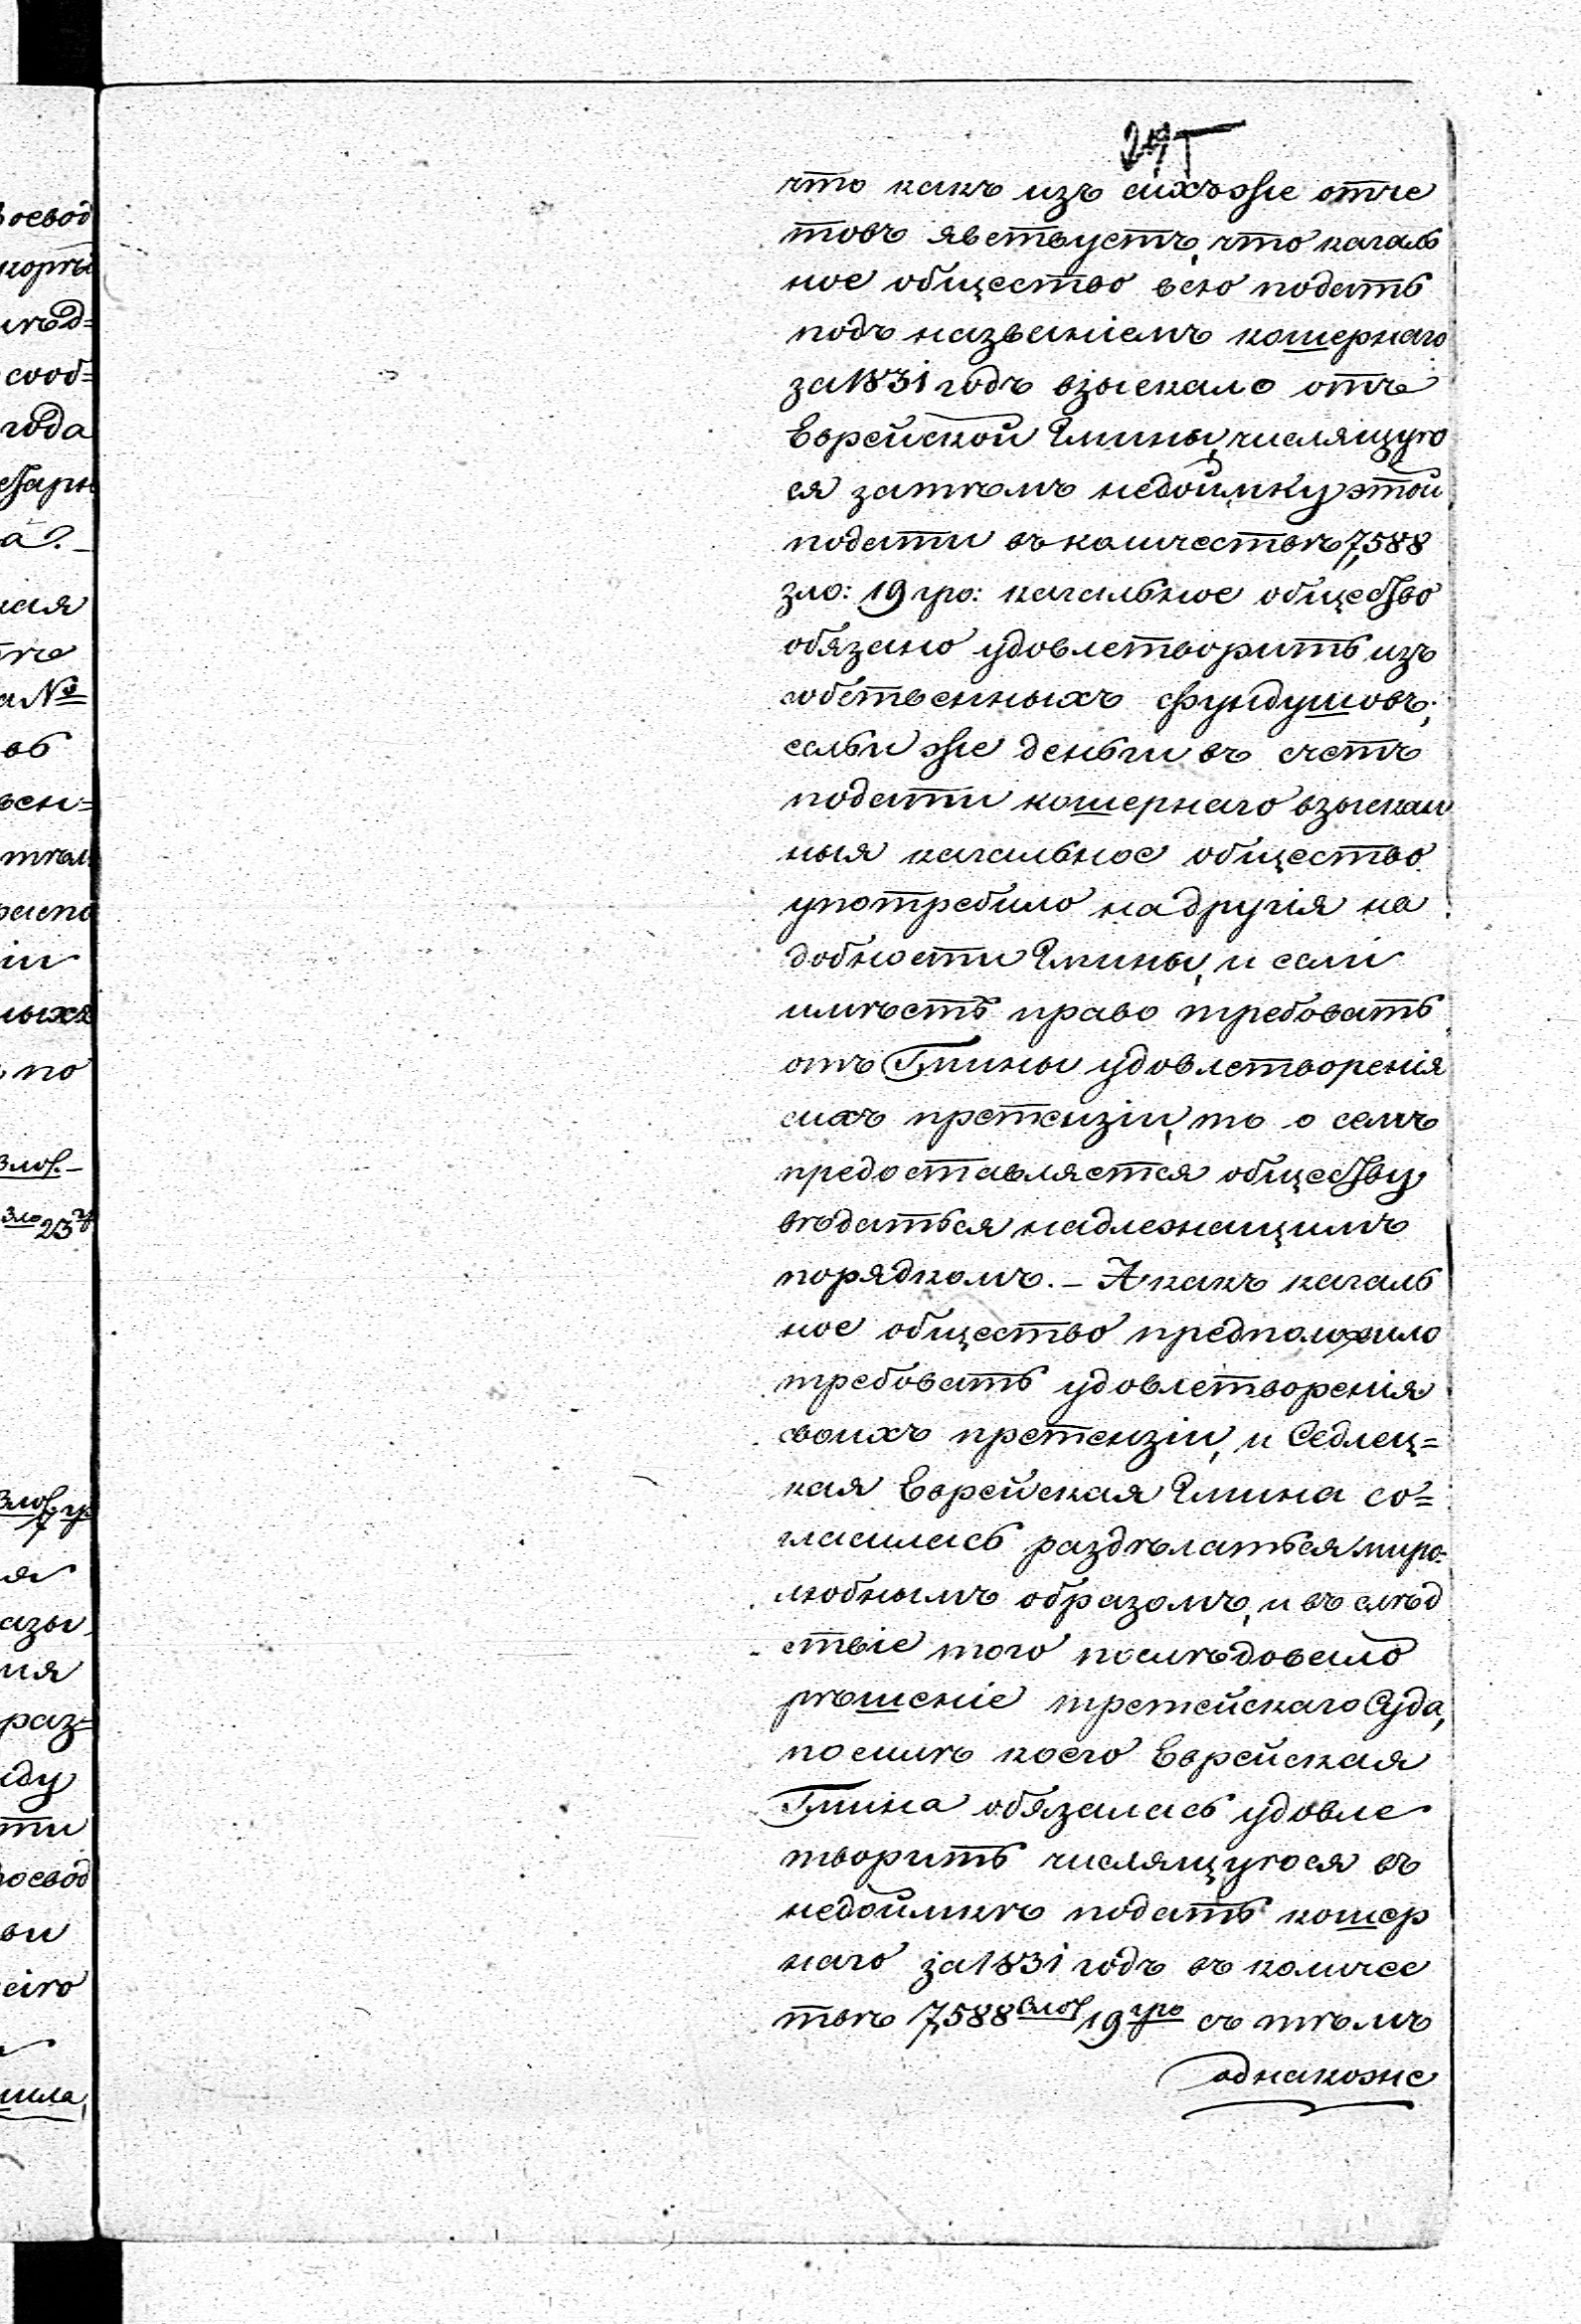 что какъ изъ сихъ же отче
товъ явствуетъ, что кагаль
ное общество всю подать
подъ названіемъ кошернаго
за 1831 годъ взыскало отъ
Еврейской Гмины, числящую
ся затѣмъ недоимку этой
подати въ количествѣ 7,588
зло: 19 гро: кагальное общество
обязано удовлетворить изъ
собственныхъ фундушовъ;
если же деньги въ счетъ
подати кошернаго взыскан
ныя кагальное общество
употребило на другія на
добности Гмины, и если
имѣетъ право требовать
отъ Гмины удовлетворенія
сихъ претензіи, то о семъ
предоставляется обществу
вѣдаться надлежащимъ
порядкомъ. – А какъ кагаль
ное общество предположило
требовать удовлетворенія
своихъ претензіи, и Седлец=
кая Еврейская Гмина со=
гласилась раздѣлаться миро-
любнымъ образомъ, и въ слѣд
ствіе того послѣдовало
рѣшеніе третейскаго Суда,
по силѣ коего Еврейская
Гмина обязалась удовле
творить числящуюся въ
недоимкѣ подать кошер
наго за 1831 годъ въ количес
твѣ 7,588 злот 19 гро съ тѣмъ
однакоже